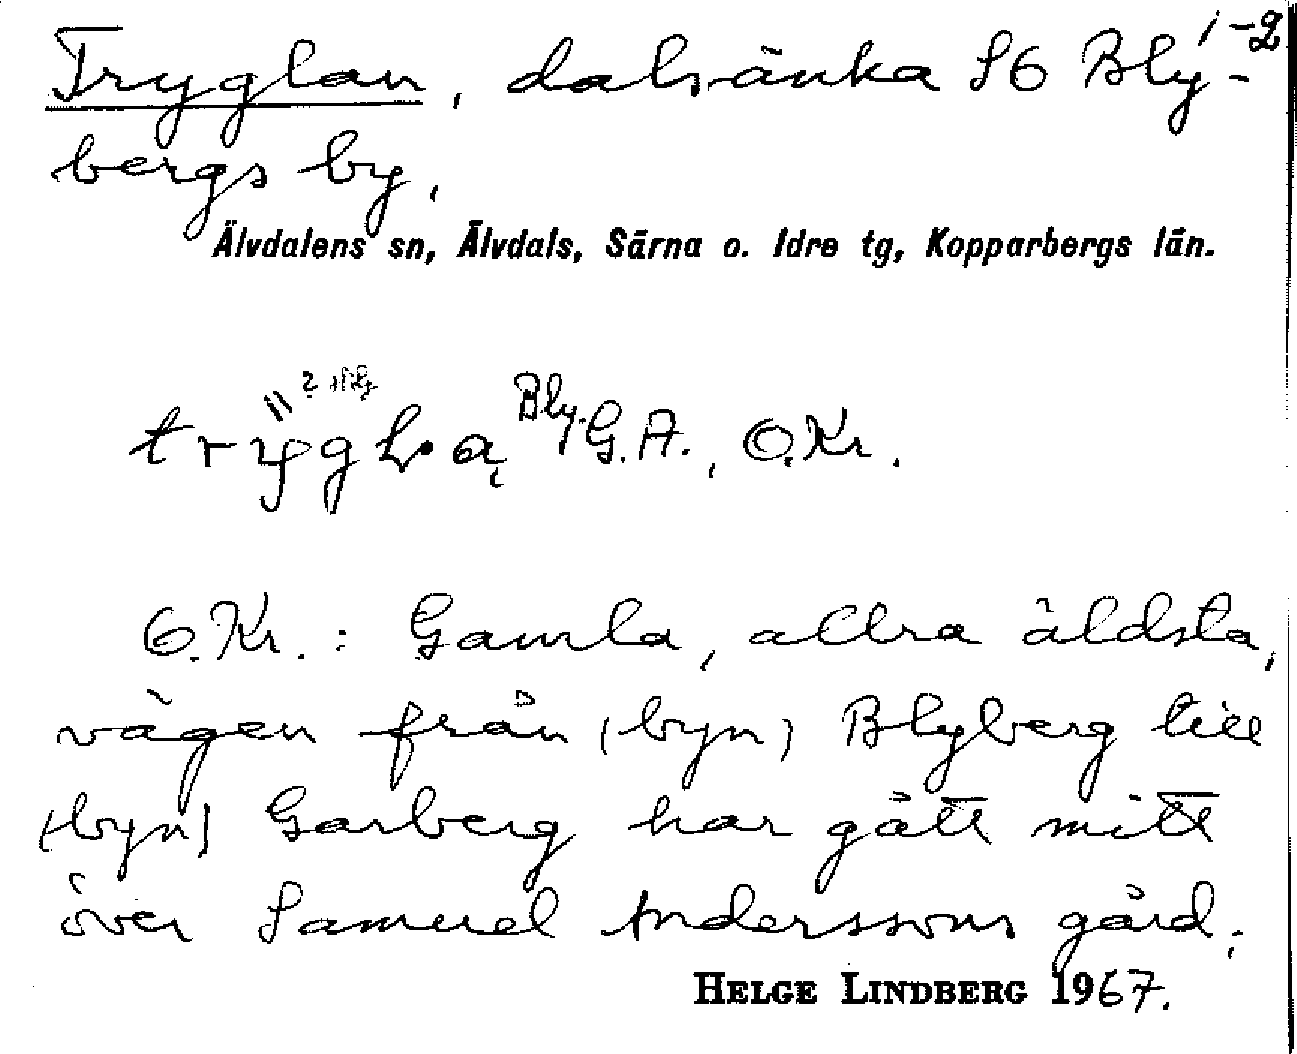 1-2
Tryglan, dalsänka SÖ Bly-
bergs by.
Älvdalens sn, Älvdals, Särna o. Idre tg, Kopparbergs län.
Bly. G.A., O.Kr.
O.Kr.: Gamla, allra äldsta,
vägen från (byn) Blyberg till
(byn) Garberg har gått mitt
över Samuel Anderssons gård.
HELGE LINDBERG 1967.